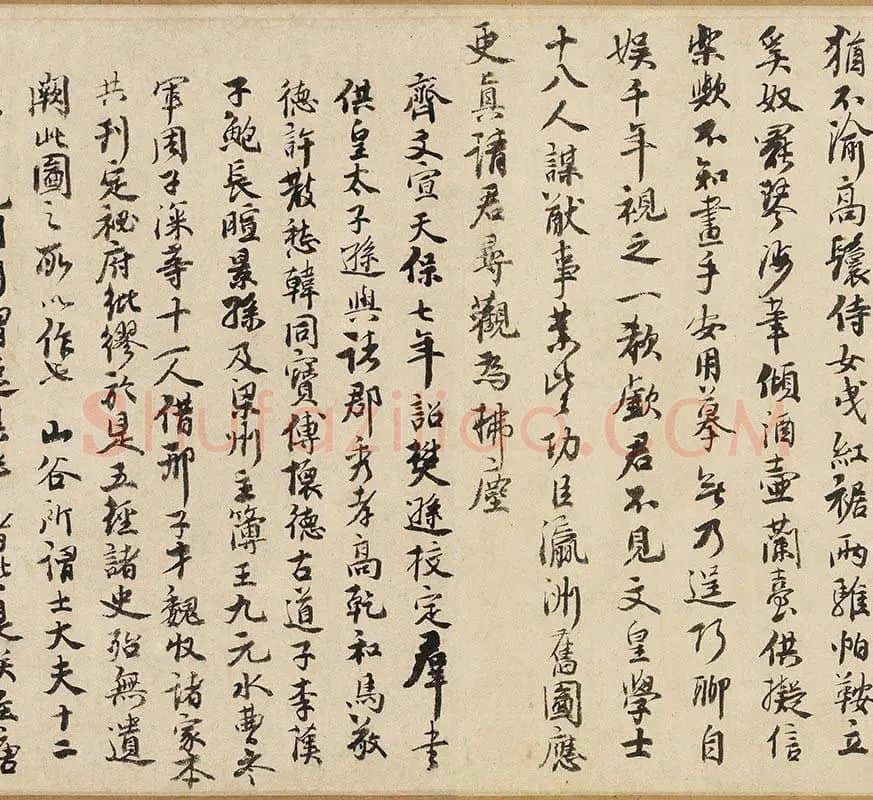 猶不渝高鬟侍女曳紅裾兩騅帕鞍立
奚奴罷琴涉筆傾酒壺蘭臺供擬信
樂歟不知畫手安用摹無乃逞巧聊自
娛千年視之一欷歔君不見文皇學士
十八人謀猷事業皆功臣瀛洲舊圖應
更真請君尋觀為拂塵
齊文宣天保七年詔樊遜校定羣書
供皇太子遜與諸郡秀孝高乾和馬敬
德許散愁韓同寶傅懷德古道子李漢
子鮑長暄景孫及梁州主簿王九元水曹參
軍周子深等十一人借邢子才魏收諸家本
共刊定秘府紕繆於是五經諸史殆無遺
闕此圖之所以作也 山谷所謂士大夫十二
Shufaziliao.COM